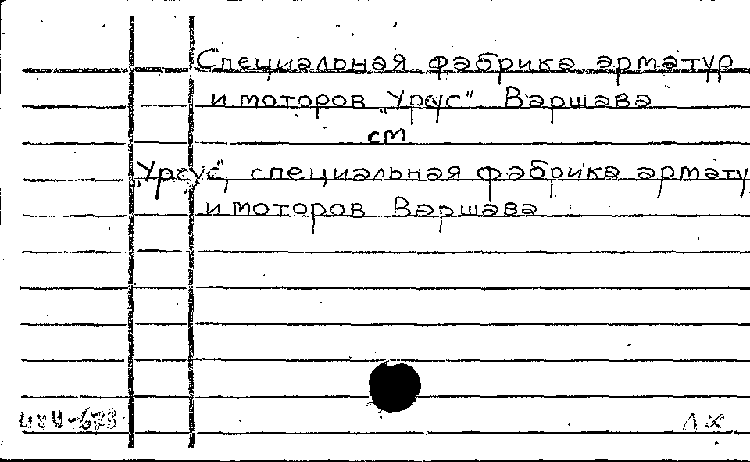 Специальная фабрика арматур
и моторов „Урсус" Варшава
см
„Урсус", специальная фабрика армату
и моторов Варшава